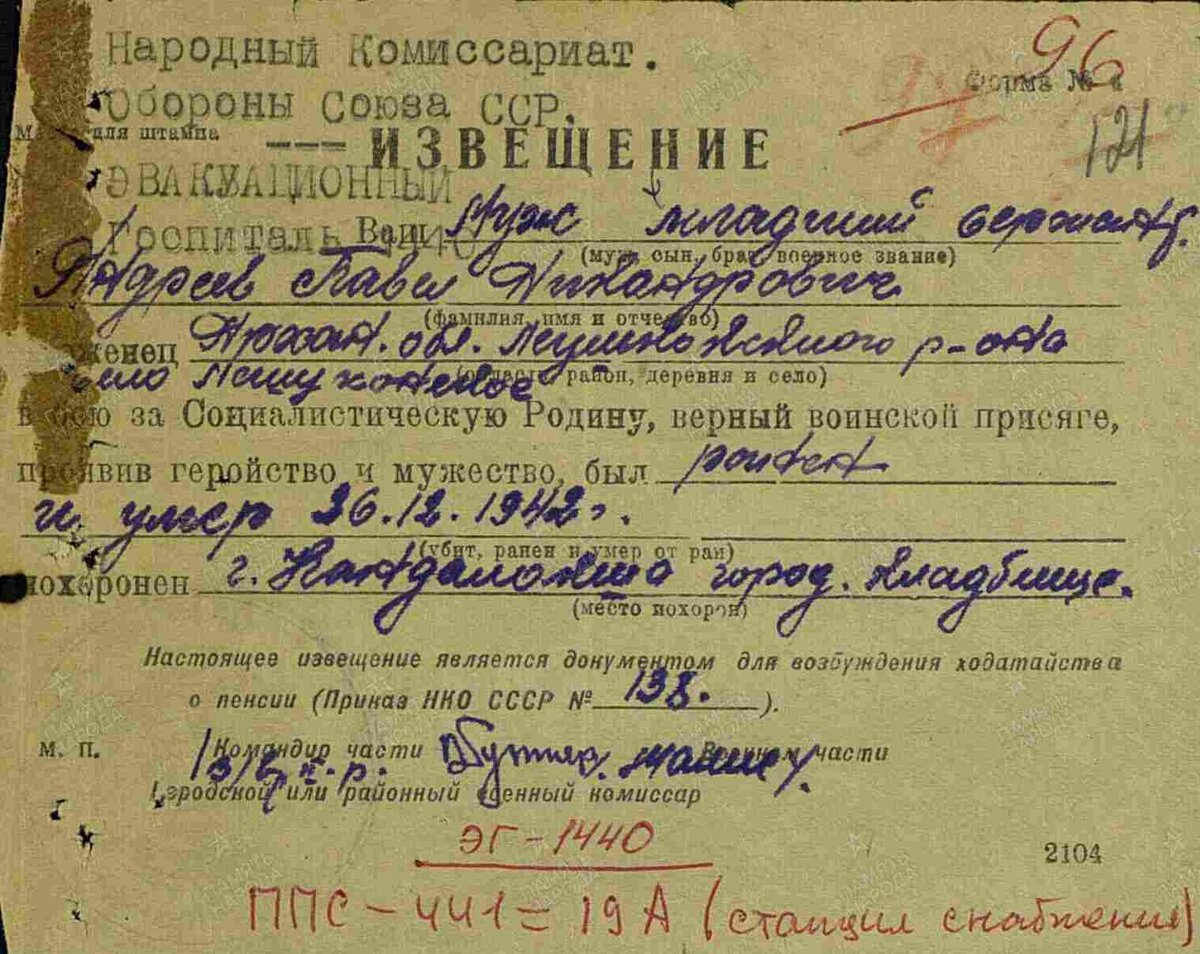 Народный Комиссариат.
96
Форма № 4
Обороны Союза ССР.
121
для штампа
--- ИЗВЕЩЕНИЕ
ЭВАКУАЦИОННЫЙ
Госпиталь
Ваш Муж младший сержант
(муж, сын, брат, военное звание)
Андреев Павел Никандрович
(фамилия, имя и отчество)
женец Архан. обл. Лешуконского р-она
село Лешуконское
(область, район, деревня и село)
в бою за Социалистическую Родину, верный воинской присяге,
проявив геройство и мужество, был ранен
и умер 26.12.1942 г.
(убит, ранен и умер от ран)
похоронен г. Кандалакша город. кладбище.
(место похорон)
Настоящее извещение является документом для возбуждения ходатайства
о пенсии (Приказ НКО СССР № 138.).
м. п.
Командир части
части
Городской или районный военный комиссар
ЭГ-1440
2104
ППС-441=19А (станция снабжения)